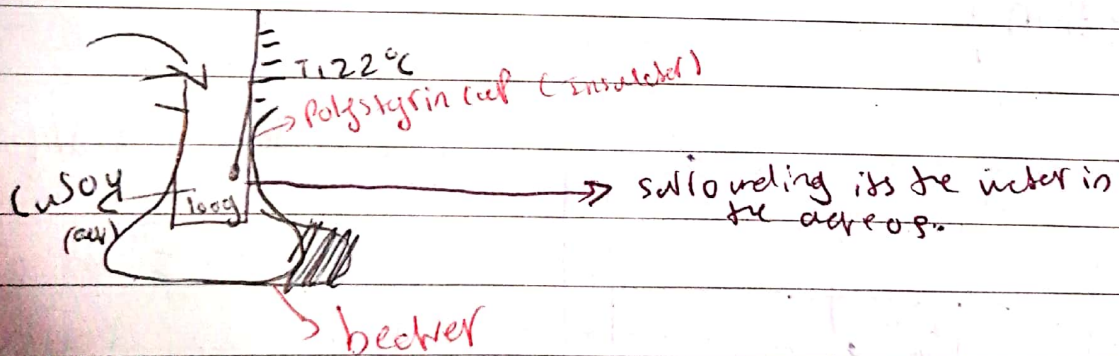 T1 22°C
Polystyrin cup (insulator)
CuSO4
(aq)
100g
surrounding its the water in
the aqreos.
becker